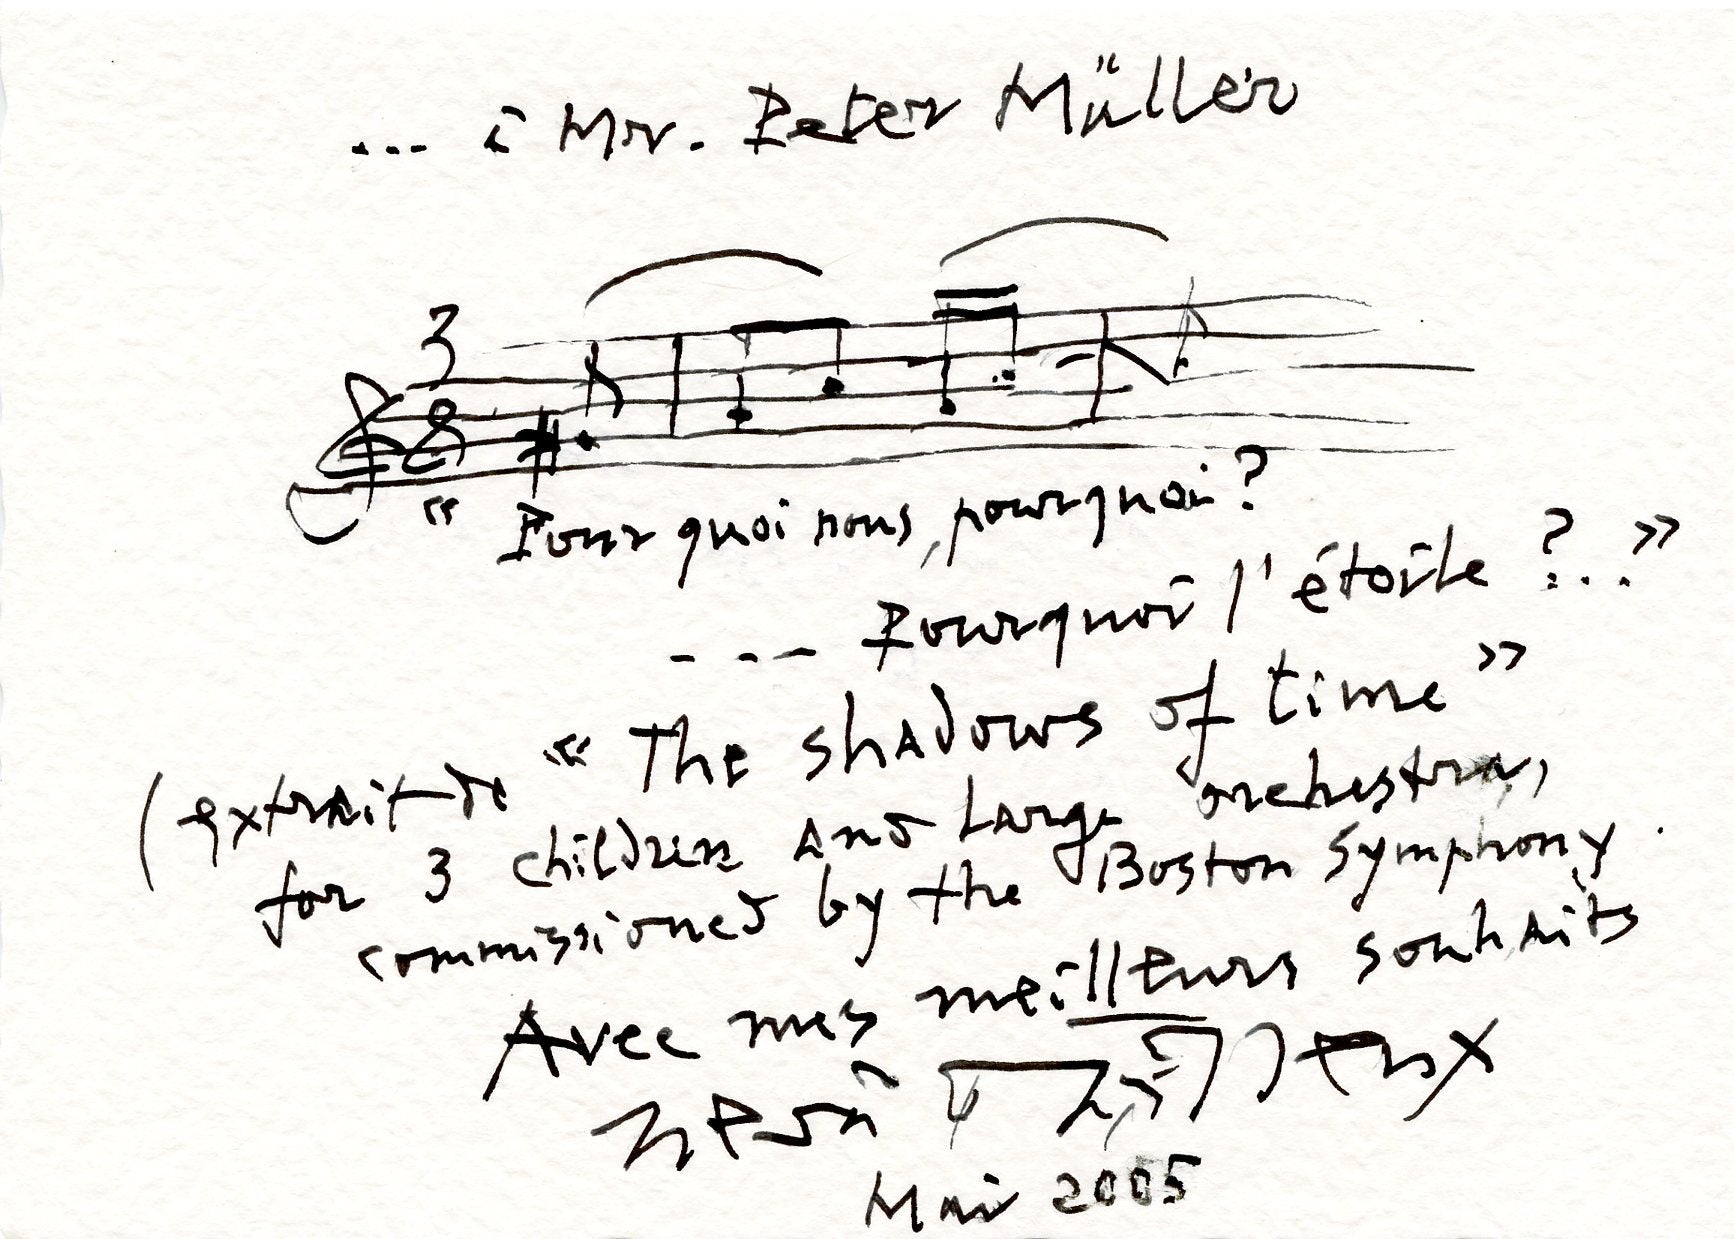 ... à Mr. Peter Müller
3
8
" Pourquoi nous, pourquoi?
--- Pourquoi l'étoile ?.. "
(extrait de " The shadows of time "
for 3 children and large orchestra,
commissioned by the Boston Symphony.
Avec mes meilleurs souhaits
Mai 2005